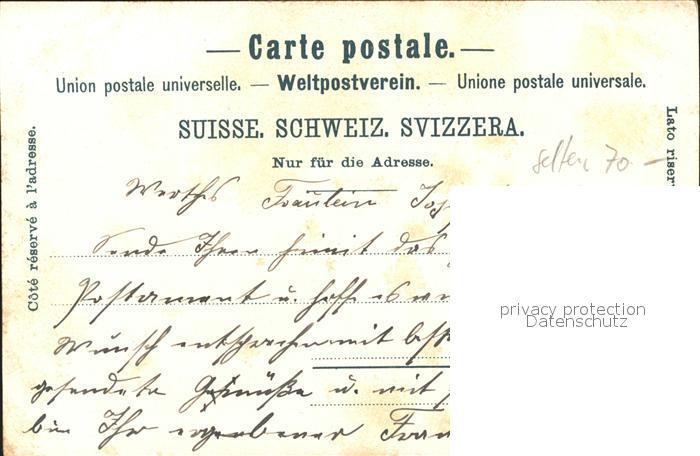 Carte postale.
Union postale universelle. — Weltpostverein. — Unione postale universale.
SUISSE. SCHWEIZ. SVIZZERA.
Nur für die Adresse.
Côté réservé à l'adresse.
Lato riser
selten 70.-
Werthes Fräulein
Sende Ihnen hiemit das
Postament u. hoffe es
Wunsch entsprechen mit best
gesendete u. mit
bin Ihr ergebener
privacy protection
Datenschutz